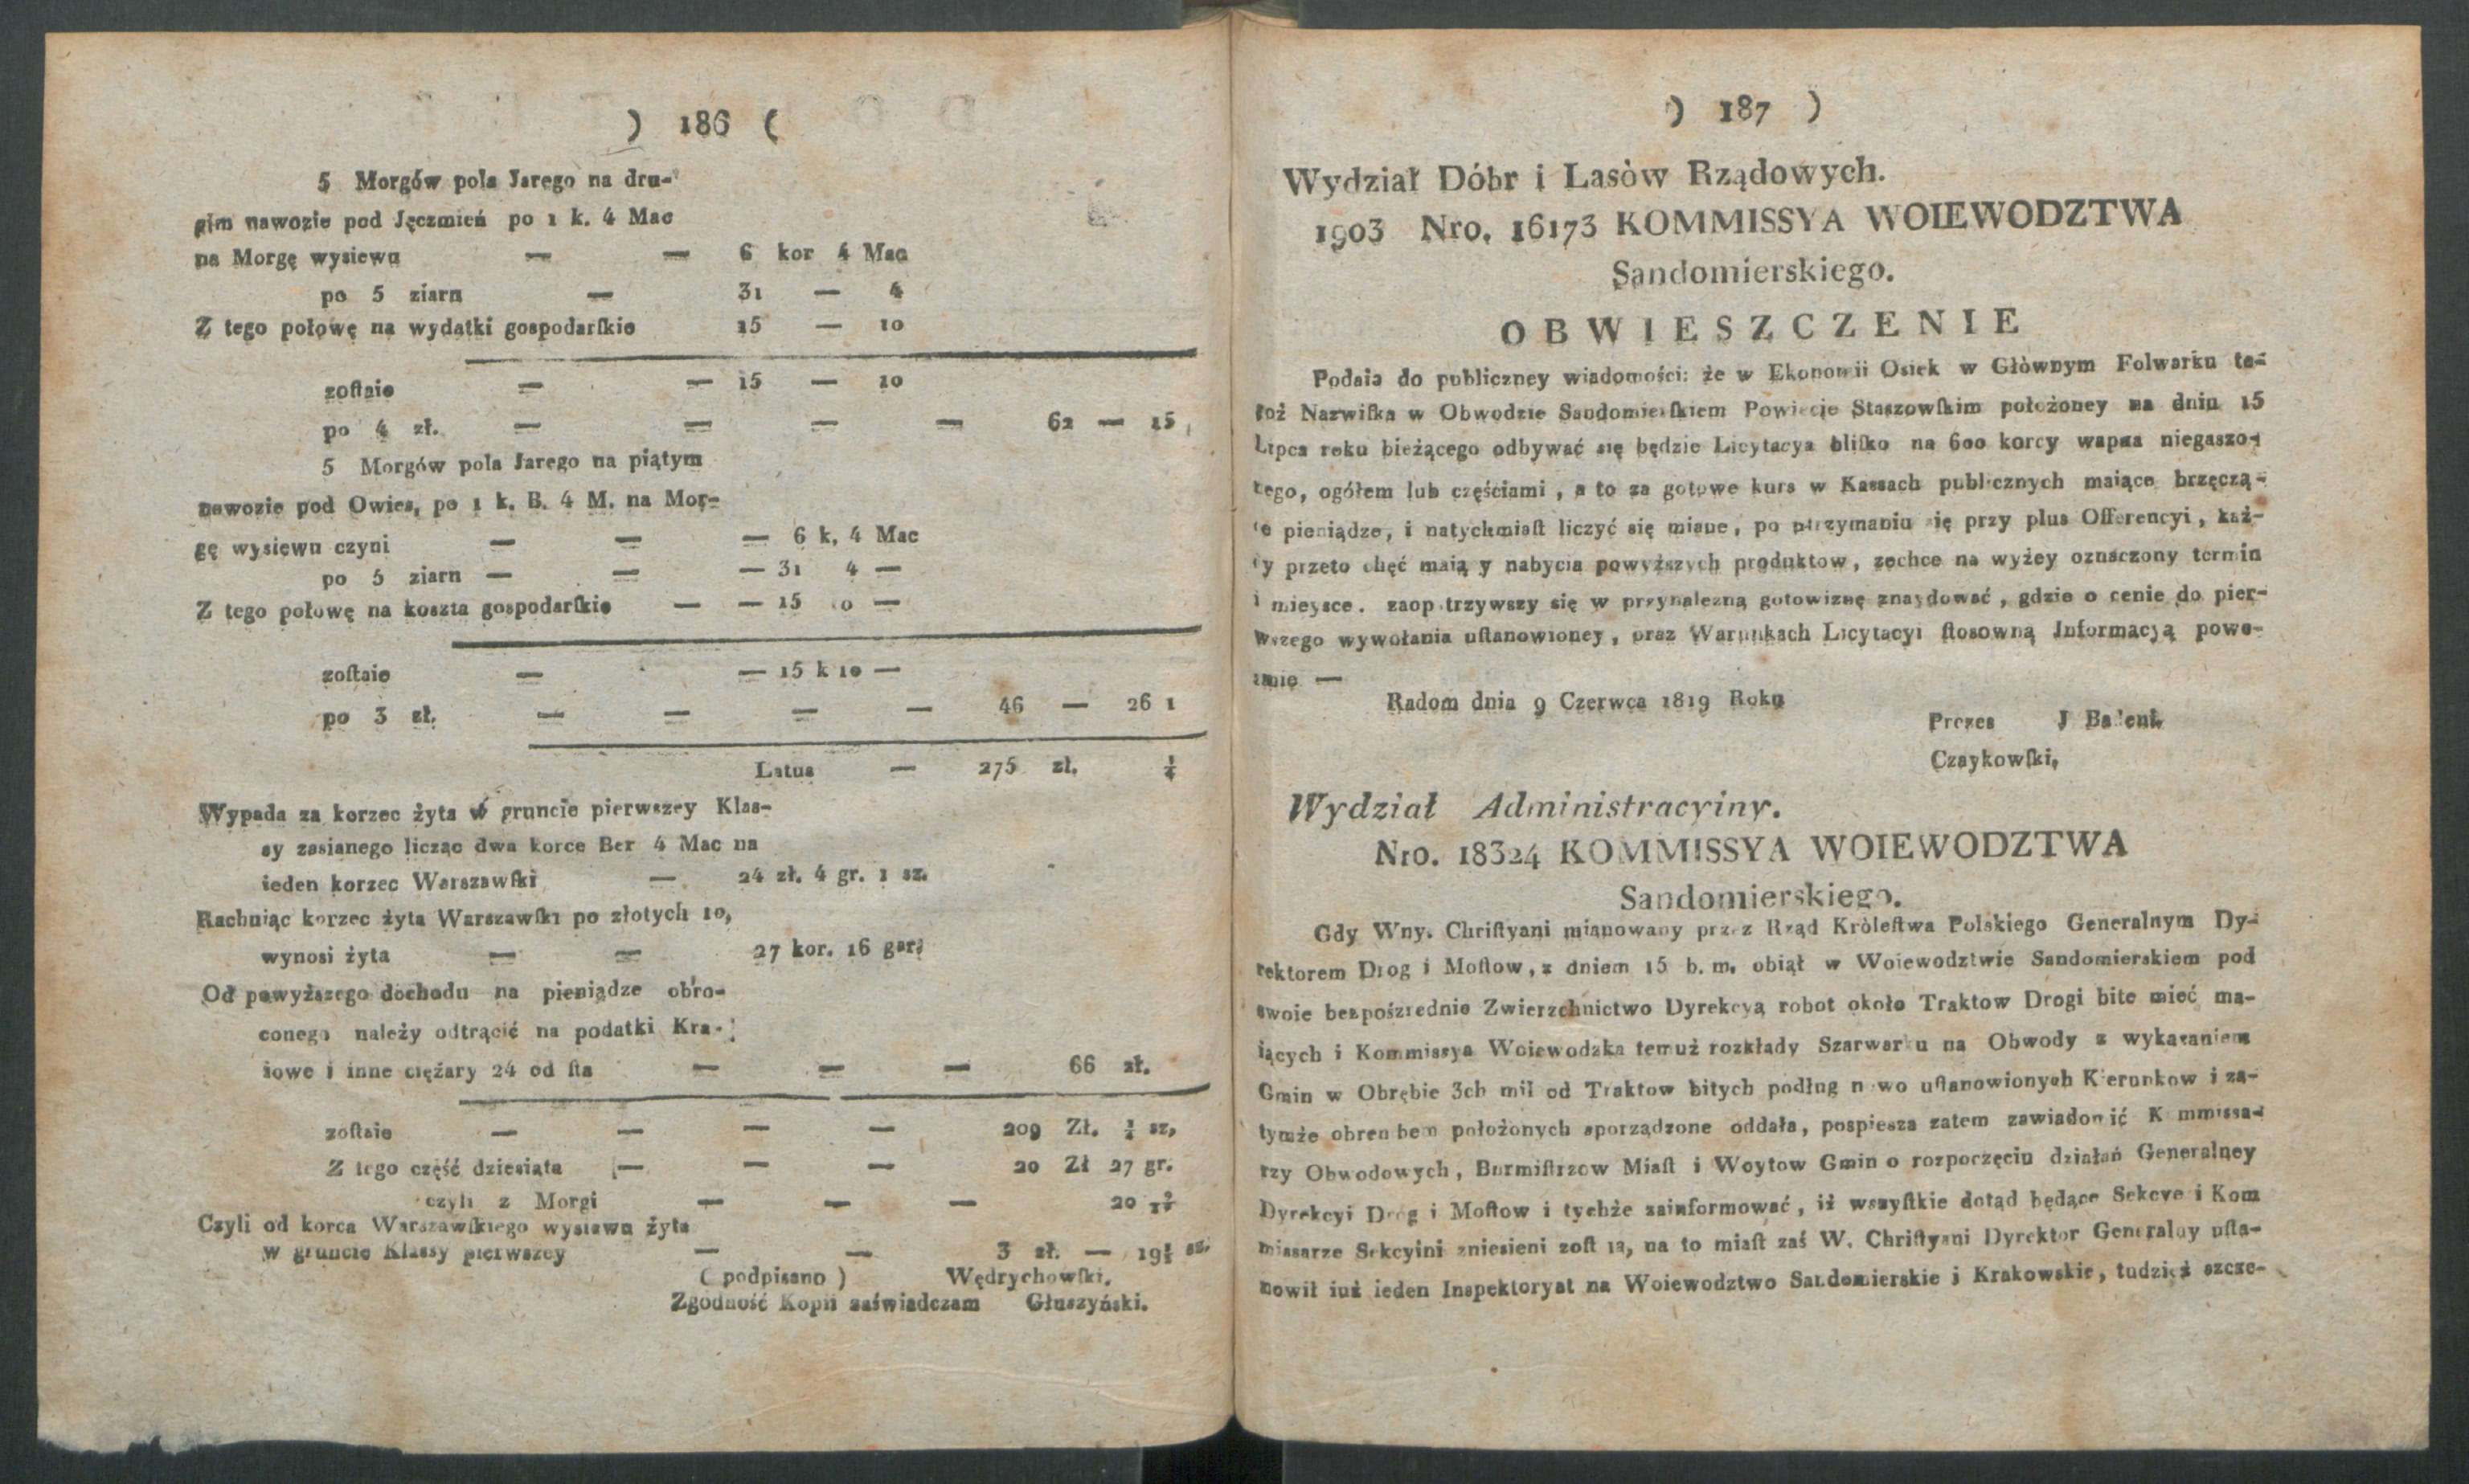 ) 186 (
5 Morgów pola Jarego na dru-
gim nawozie pod Jęczmień po 1 k. 4 Mac
na Morgę wysiewu — — 6 kor 4 Mac
po 5 ziarn — 31 — 4
Z tego połowę na wydatki gospodarſkie 15 — 10
zoſtaie — — 15 — 10
po 4 zł. — — — — 62 — 15
5 Morgów pola Jarego na piątym
nawozie pod Owies, po 1 k. B. 4 M. na Mor-
gę wysiewu czyni — — — 6 k, 4 Mac
po 5 ziarn — — — 31 4 —
Z tego połowę na koszta gospodarſkie — — 15 10 —
zoſtaie — — 15 k 10 —
po 3 zł. — — — — 46 — 26 1
Latus — 275 zł. ¼
Wypada za korzec żyta w gruncie pierwszey Klas-
sy zasianego licząc dwa korce Ber 4 Mac na
ieden korzec Warszawſki — 24 zł. 4 gr. 1 sz.
Rachuiąc korzec żyta Warszawſki po złotych 10,
wynosi żyta — — 27 kor. 16 gar:
Od powyższego dochodu na pieniądze obro-
conego należy odtrącić na podatki Kra-
iowe i inne ciężary 24 od ſta — — — 66 zł.
zoſtaie — — — — 209 Zł. ¼ sz,
Z tego część dziesiąta — — — 20 Zł 27 gr.
czyli z Morgi — — — 20
Czyli od korca Warszawſkiego wysiawu żyta
w gruncie Klassy pierwszey — — 3 zł. — 19½ sz.
( podpisano ) Wędrychowſki.
Zgodność Kopii zaświadczam Głuszyński.
) 187 )
Wydział Dóbr i Lasòw Rządowych.
1903 Nro. 16173 KOMMISSYA WOIEWODZTWA
Sandomierskiego.
OBWIESZCZENIE
Podaia do publiczney wiadomości: że w Ekonomii Osiek w Głòwnym Folwarku te-
goż Nazwiſka w Obwodzie Sandomierſkiem Powiecie Staszowſkim położoney na dniu 15
Lipca roku bieżącego odbywać się będzie Licytacya bliſko na 600 korcy wapna niegaszo-
nego, ogółem lub częściami, a to za gotowe kurs w Kassach publicznych maiące brzęczą-
ce pieniądze, i natychmiaſt liczyć się miane, po utrzymaniu się przy plus Offerencyi, każ-
dy przeto chęć maią y nabycia powyższych produktow, zechce na wyżey oznaczony termin
i mieysce. zaop trzywszy się w przynalezną gotowiznę znaydować, gdzie o cenie do pier-
wszego wywołania uſtanowioney, oraz Warunkach Licytacyi ſtosowną Informacyą powe-
zmie —
Radom dnia 9 Czerwca 1819 Roku
Prezes J Badeni.
Czaykowſki,
Wydział Administracyiny.
Nro. 18324 KOMMISSYA WOIEWODZTWA
Sandomierskiego.
Gdy Wny. Chriſtyani mianowany przez Rząd Kròleſtwa Polskiego Generalnym Dy-
rektorem Drog i Moſtow, z dniem 15 b. m. obiął w Woiewodztwie Sandomierskiem pod
swoie bezpośrzednie Zwierzchnictwo Dyrekcyą robot około Traktow Drogi bite mieć ma-
iących i Kommissya Woiewodzka temuż rozkłady Szarwarku na Obwody z wykazaniem
Gmin w Obrębie 3ch mil od Traktow bitych podług nowo uſtanowionych Kierunkow i za-
tymże obrenbem położonych sporządzone oddała, pospiesza zatem zawiadomić Kommissa-
rzy Obwodowych, Burmiſtrzow Miaſt i Woytow Gmin o rozpoczęciu działań Generalney
Dyrekcyi Dróg i Moſtow i tychże zainformować, iż wszyſtkie dotąd będące Sekcye i Kom
missarze Sekcyini zniesieni zoſt ią, na to miaſt zaś W. Chriſtyani Dyrektor Generalny uſta-
nowił iuż ieden Inspektoryat na Woiewodztwo Sandomierskie i Krakowskie, tudzież szcze-